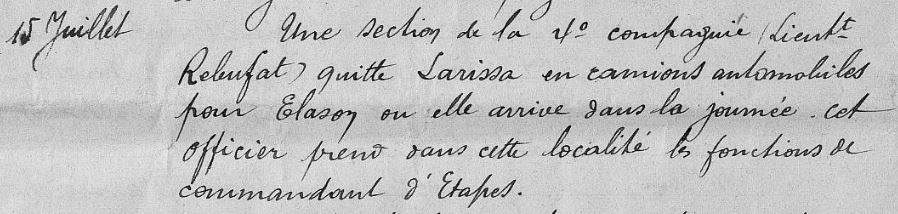 15 Juillet Une section de la 4° compagnie (Lieutt
Rebuffat) quitte Larissa en camions automobiles
pour Elason ou elle arrive dans la journée. cet
officier prend dans cette localité les fonctions de
commandant d'Etapes.